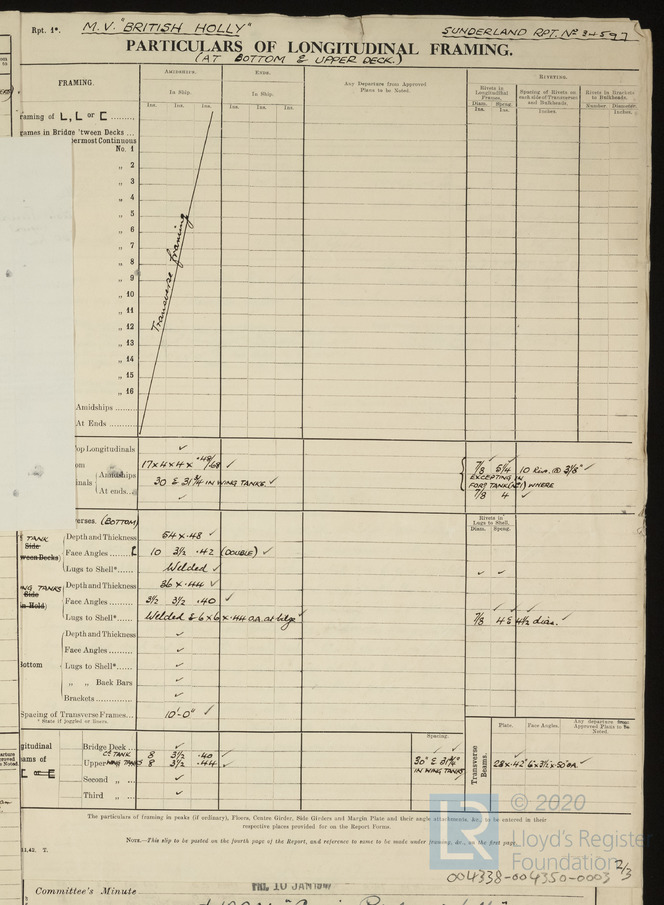 Rpt. 1*. M.V. "BRITISH HOLLY" SUNDERLAND RPT. Nº 34597
PARTICULARS OF LONGITUDINAL FRAMING.
(AT BOTTOM & UPPER DECK.)
FRAMING. AMIDSHIPS. ENDS. Any Departure from Approved Plans to be Noted. RIVETING.
In Ship. In Ship. Rivets in Longitudinal Frames. Spacing of Rivets on each side of Transverses and Bulkheads. Rivets in Brackets to Bulkheads.
Ins. Ins. Ins. Ins. Ins. Ins. Diam. Ins. Spcng. Ins. Inches. Number. Diameter. Inches.
raming of L, L or C
rames in Bridge 'tween Decks ...
permost Continuous
No. 1
„ 2
„ 3
„ 4
„ 5
„ 6
„ 7
„ 8
„ 9
„ 10
„ 11
„ 12
„ 13
„ 14
„ 15
„ 16
Transverse framing
Amidships
At Ends
op Longitudinals ✓
om 17 x 4 x 4 x .48/.68 ✓ 7/8 5 1/4 10 Riv. @ 3 1/8" ✓
nals (Amidships 30 & 31 3/4 IN WING TANKS ✓ EXCEPTING IN
(At ends ✓ FORD TANK (Nº1) WHERE
7/8 4 ✓
erses. (BOTTOM) Rivets in Lugs to Shell. Diam. Spcng.
TANK Side ween Decks) Depth and Thickness 54 x .48 ✓
Face Angles [ 10 3 1/2 .42 (DOUBLE) ✓
Lugs to Shell* Welded ✓ ✓ ✓
NG TANKS Side n Hold) Depth and Thickness 36 x .44 ✓
Face Angles 3 1/2 3 1/2 .40 ✓
Lugs to Shell* Welded & 6 x 6 x .44 O.A. at bilge ✓ 7/8 4 & 4 1/2 dias. ✓
Bottom Depth and Thickness ✓
Face Angles ✓
Lugs to Shell* ✓
„ „ Back Bars ✓
Brackets ✓
Spacing of Transverse Frames... 10'-0" ✓
* State if joggled or liners.
Plate. Face Angles. Any departure from Approved Plans to be Noted.
gitudinal ams of Bridge Deck ✓ Spacing.
Upper CR TANK 8 3 1/2 .40 ✓ 30" & 31 3/4"
WING TANKS 8 3 1/2 .44 ✓ IN WING TANKS
Transverse Beams. 28 x .42 6 x 3 1/2 x .50 O.A.
Second „ ✓
Third „ ✓
The particulars of framing in peaks (if ordinary), Floors, Centre Girder, Side Girders and Margin Plate and their angle attachments, &c., to be entered in their
respective places provided for on the Report Forms.
NOTE.—This slip to be posted on the fourth page of the Report, and reference to same to be made under framing, &c., on the first page.
© 2020
LR Lloyd's Register
Foundation
2/3
004338-004350-0003
FRI. 10 JAN 1947
Committee's Minute